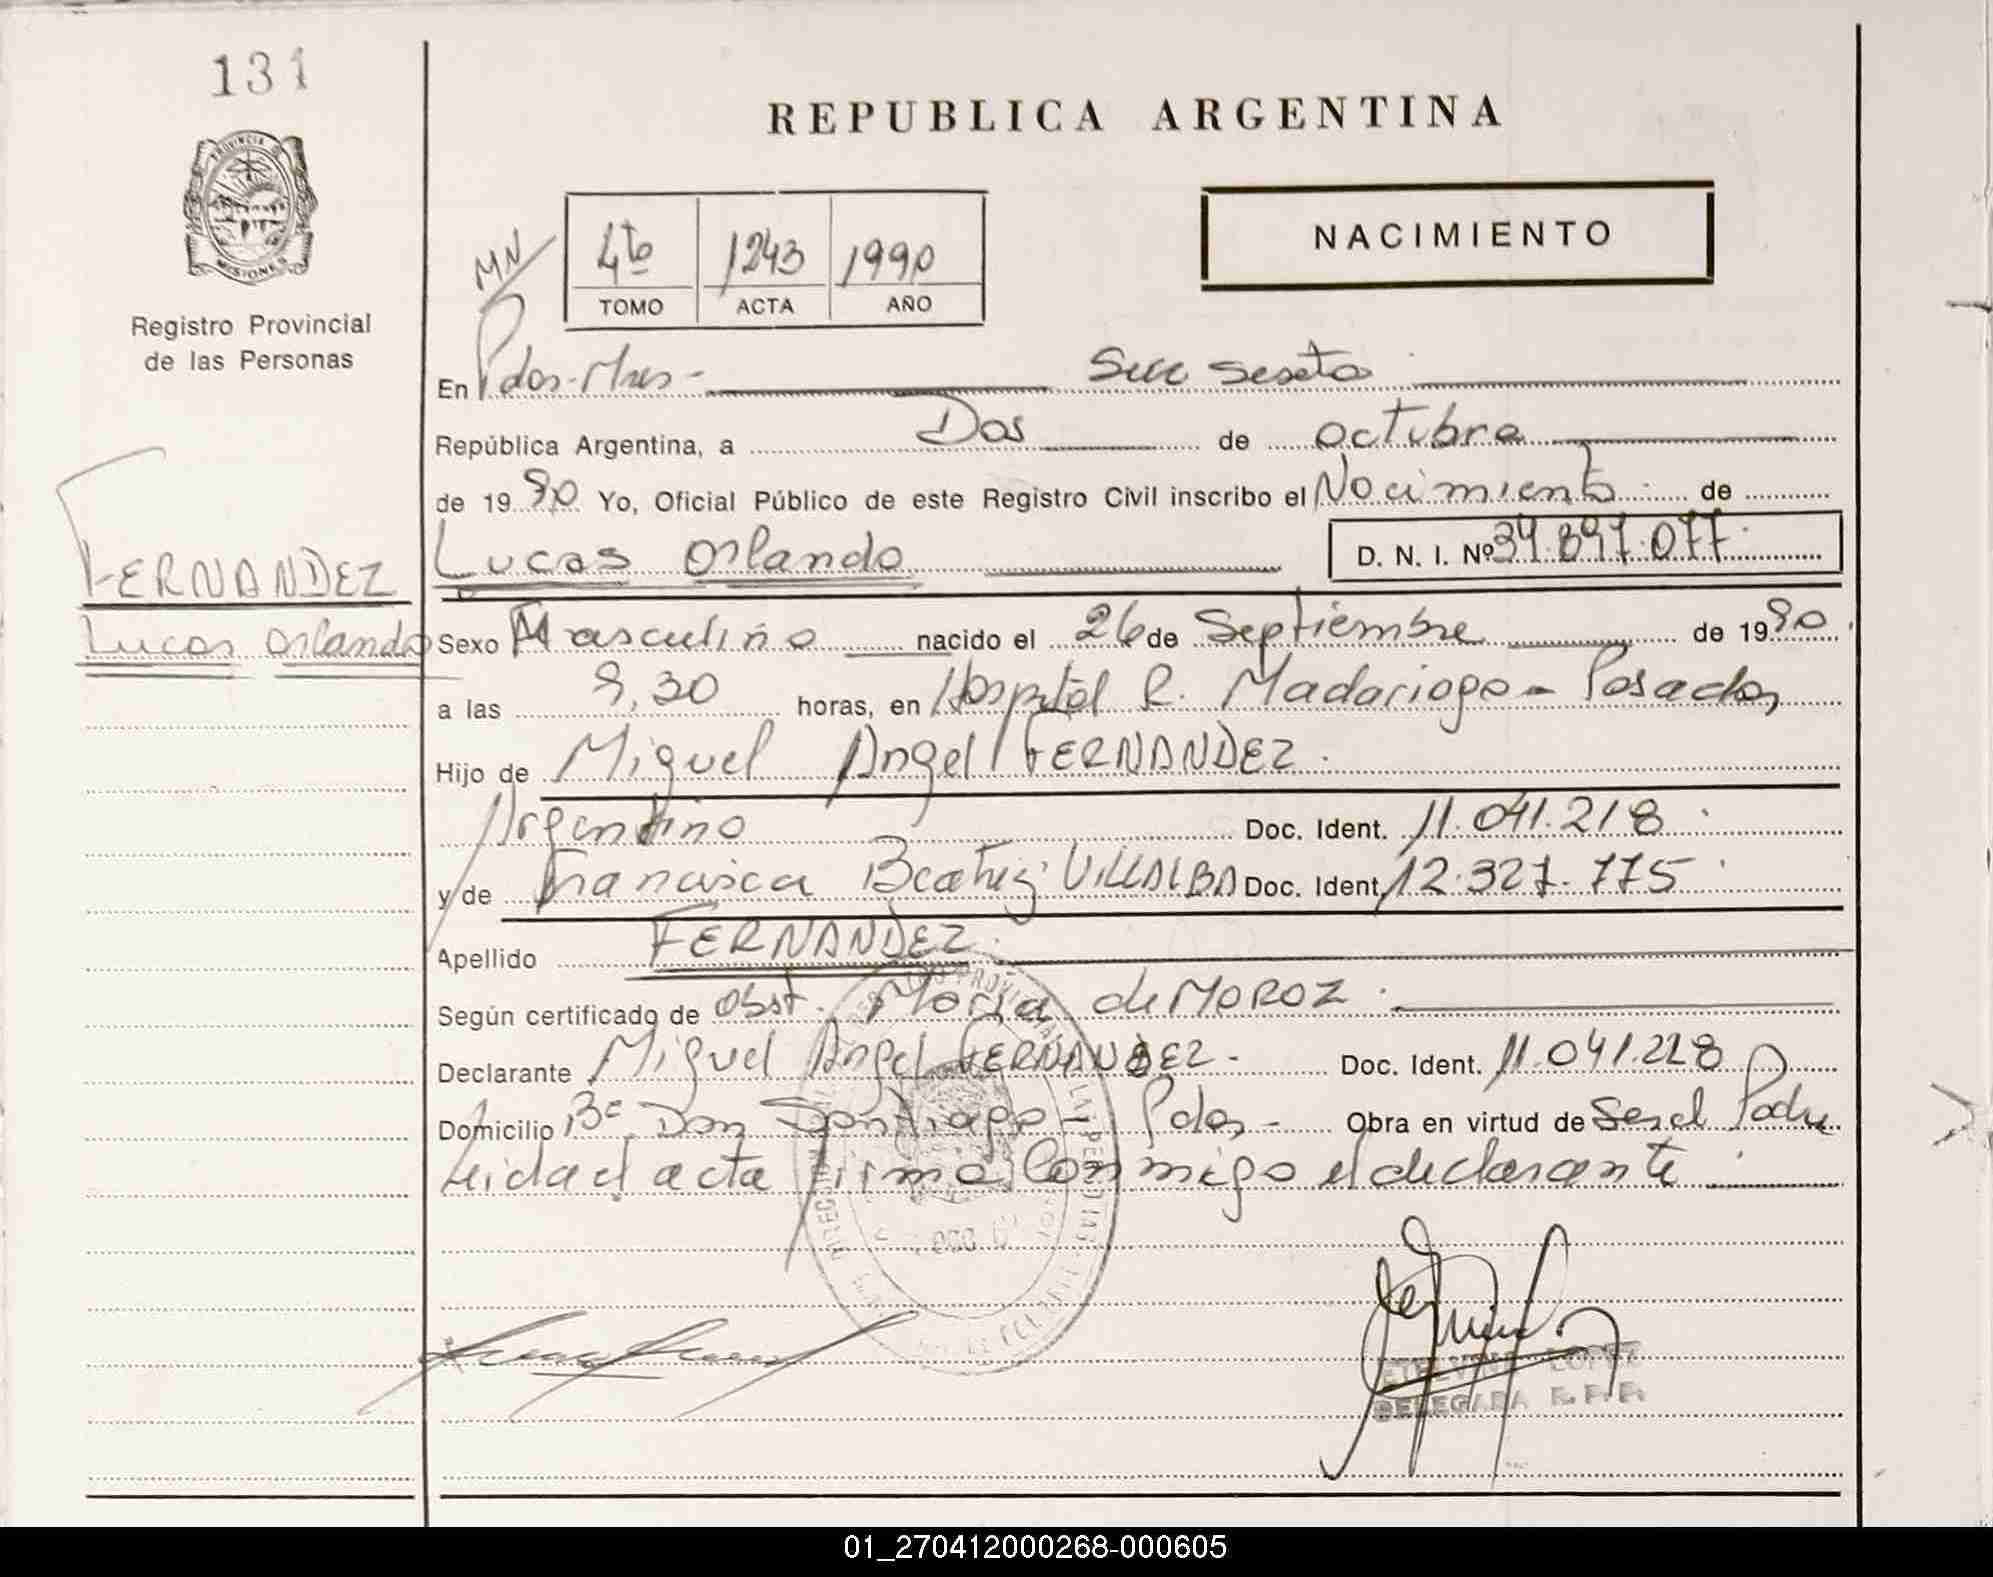 131
REPUBLICA ARGENTINA
PROVINCIA D
MISIONES
Registro Provincial
de las Personas
NACIMIENTO
MN
4to 1243 1990
TOMO ACTA AÑO
En Pdas-Mnes- Secc Sexta
República Argentina, a Dos de octubre
de 1990 Yo, Oficial Público de este Registro Civil inscribo el Nacimiento de
Lucas Orlando D. N. I. Nº 34.897.077
FERNANDEZ
Lucas Orlando
Sexo Masculino nacido el 26 de Septiembre de 1990
a las 9,30 horas, en Hospital R. Madariaga - Posadas,
Hijo de Miguel Angel FERNANDEZ.
Argentino Doc. Ident. 11.041.218
y de Francisca Beatriz VILLALBA Doc. Ident. 12.327.775
Apellido FERNANDEZ.
Según certificado de Obst. Maria de MOROZ.
Declarante Miguel Angel FERNANDEZ - Doc. Ident. 11.041.228
Domicilio Bº Don Santiago - Pdas - Obra en virtud de Ser el Padre
Leida el acta firma Conmigo el declarante.
LOPEZ
DELEGADA R.P.P.
01_270412000268-000605